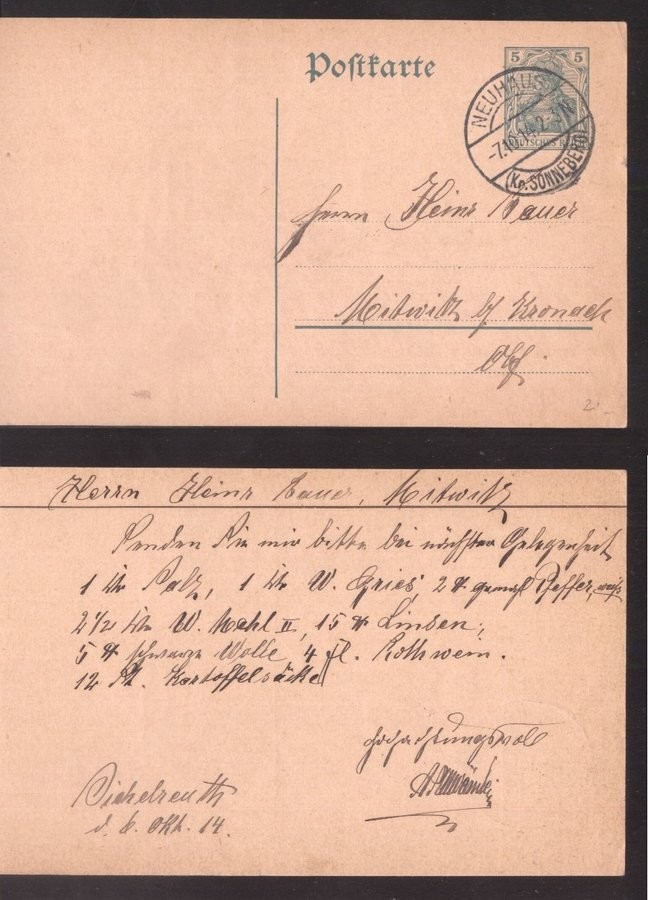 Postkarte
5 5
DEUTSCHES REICH
NEUHAUS
-7.10.14. 2-3 N
(Kr. SONNEBERG)
Herrn Heinr Bauer
Mitwitz b/ Kronach
Obf
Herrn Heinr Bauer, Mitwitz
Senden Sie mir bitte bei nächster Gelegenheit
1 Ztr Salz, 1 Ztr W. Gries, 2 ℔ gemahl Pfeffer, weiß
2 1/2 Ztr W. Mehl II, 15 ℔ Linsen,
5 ℔ schwarze Wolle, 4 Fl. Rothwein.
12 St. Kartoffelsäcke
Hochachtungsvoll
Sichelreuth
d. 6. Okt. 14.